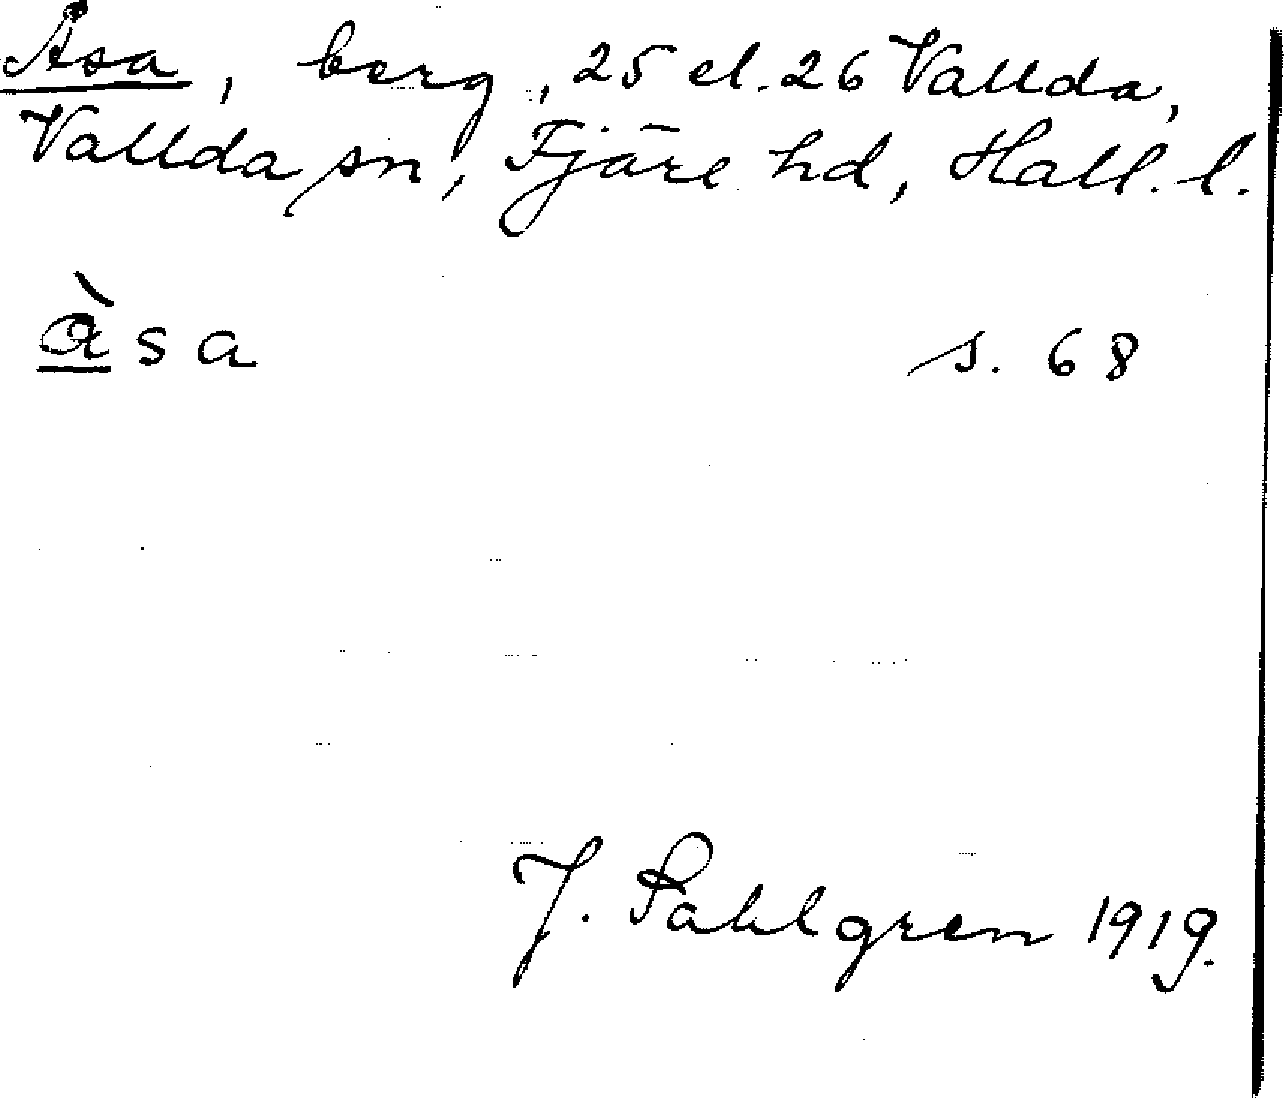 Åsa, berg, 25 el. 26 Vallda,
Vallda sn, Fjäre hd, Hall. l.
åsa s. 68
J. Sahlgren 1919.